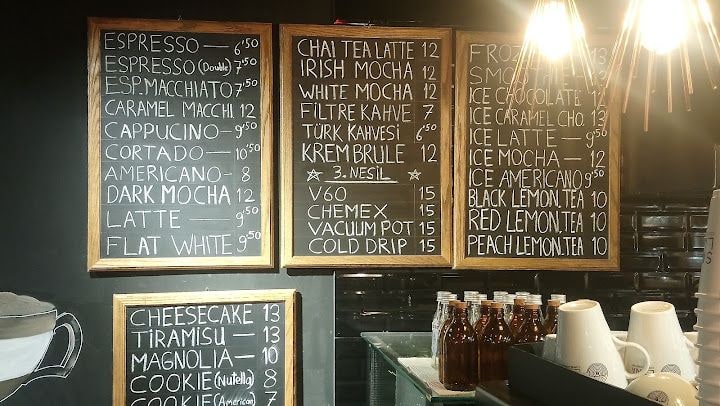 ESPRESSO — 6'50
ESPRESSO (Double) 7'50
ESP. MACCHIATO 7'50
CARAMEL MACCHI. 12
CAPPUCINO — 9'50
CORTADO — 10'50
AMERICANO - 8
DARK MOCHA 12
LATTE — 9'50
FLAT WHITE 9'50
CHAI TEA LATTE 12
IRISH MOCHA 12
WHITE MOCHA 12
FİLTRE KAHVE 7
TÜRK KAHVESİ 6'50
KREM BRULE 12
☆ 3. NESİL ☆
V60 15
CHEMEX 15
VACUUM POT 15
COLD DRIP 15
13
ICE CHOCOLATE 12
ICE CARAMEL CHO. 13
ICE LATTE — 9'50
ICE MOCHA — 12
ICE AMERICANO 9'50
BLACK LEMON.TEA 10
RED LEMON.TEA 10
PEACH LEMON.TEA 10
CHEESECAKE 13
TİRAMİSU — 13
MAGNOLIA — 10
COOKIE (Nutella) 8
COOKIE (American) 7